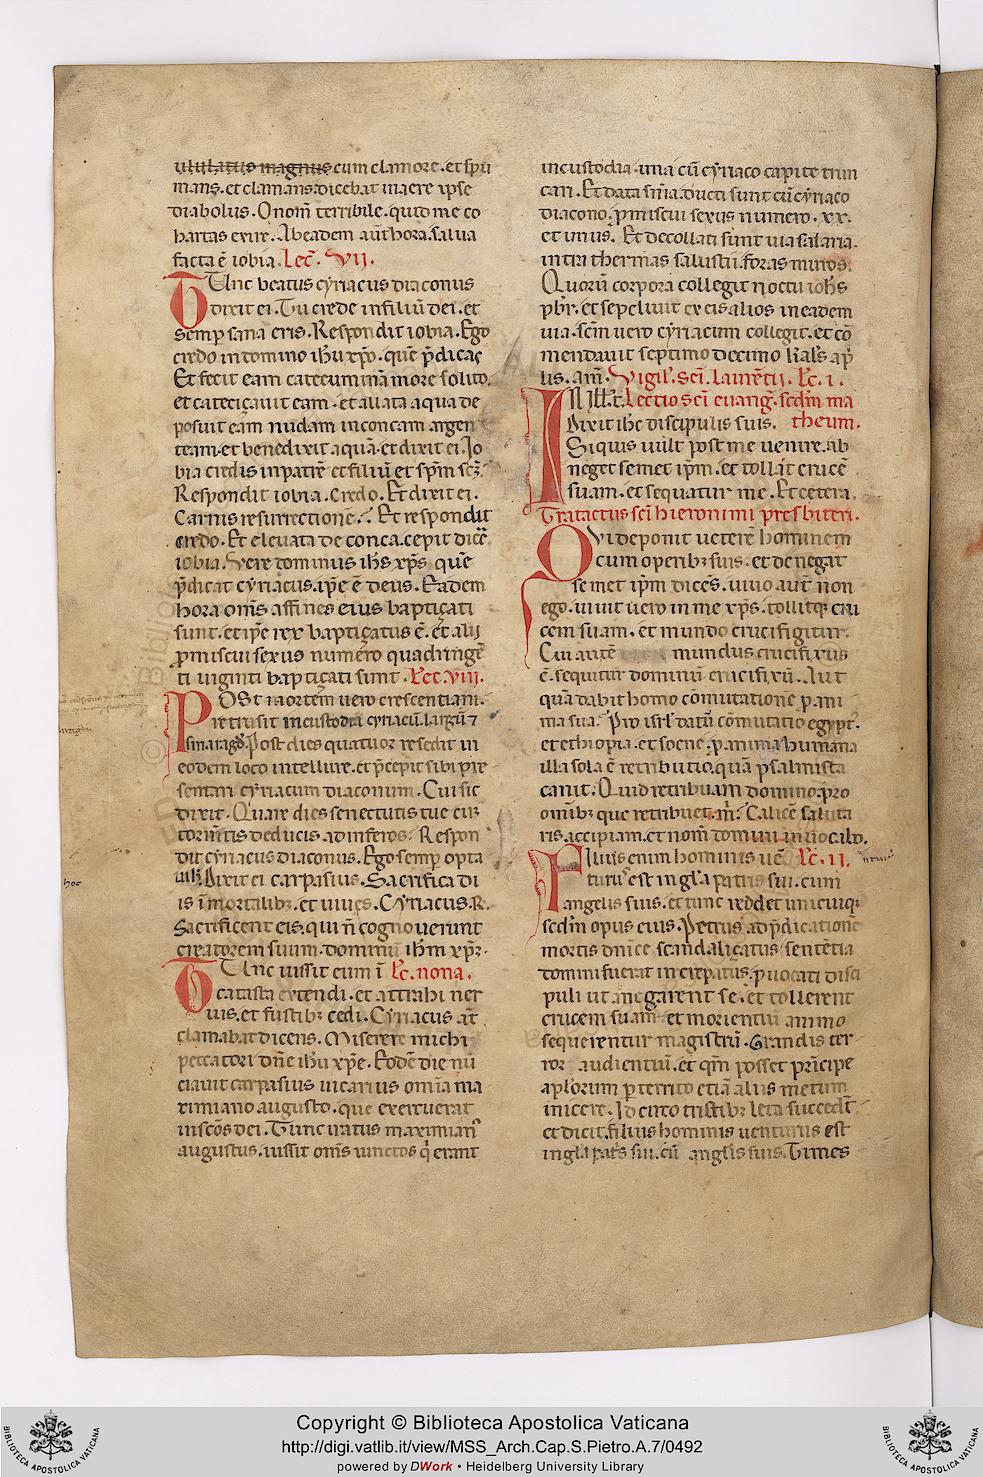 ululatus magnus cum clamore. et spu
mans. et clamans. dicebat in aere ipse
diabolus. O nom̃ terribile. quid me co
hartas exire. Ab eadem aut̃ hora. salua
facta ẽ iobia. Lec̃. VII.
TUnc beatus cyriacus diaconus
dixit ei. Tu crede in filiũ dei. et
semꝑ sana eris. Respondit iobia. Ego
credo in domino ihũ xp̃o. quẽ p̃dicas
Et fecit eam catecuminã more solito.
et cateciçauit eam. et allata aqua de
posuit eam nudam in concam argen
team. et benedixit aquã. et dixit ei. Io
bia credis in patrẽ et filiũ et sp̃m sc̃m.
Respondit iobia. Credo. Et dixit ei.
Carnis resurrectionẽ. Et respondit
credo. Et eleuata de conca. cepit dic̃e
iobia. Vere dominus ih̃s xp̃s quẽ
p̃dicat cyriacus. ip̃e ẽ deus. Eadem
hora om̃s affines eius baptiçati
sunt. et ip̃e rex baptiçatus ẽ. et alij
ꝓmiscui sexus numero quadringẽ
ti uiginti baptiçati sunt. Lec̃. VIII.
POSt mortem uero crescentiani.
retrusit in custodia cyriacũ. largũ ⁊
smaragdũ. Post dies quatuor resedit in
eodem loco intellure. et p̃cepit sibi pre
sentari cyriacum diaconum. Cui sic
dixit. Quare dies senectutis tue cum
torm̃tis deducis ad inferos. Respon
dit cyriacus diaconus. Ego semꝑ opta
ui. Dixit ei carpasius. Sacrifica di
is ĩmortalibꝫ. et uiues. Cyriacus. R.
Sacrificent eis. qui ñ cognouerunt
creatorem suum. dominũ ih̃m xp̃m.
TUnc iussit eum ĩ Lc̃. nona.
catasta extendi. et attrahi ner
uis. et fustibꝫ cedi. Cyriacus aũt
clamabat dicens. Miserere michi
peccatori dñe ihũ xp̃e. Eodẽ die nũ
ciauit carpasius uicarius omĩa ma
ximiano augusto. que exercuerat
in sc̃os dei. Tunc iratus maximianꝰ
augustus. iussit om̃s uinctos qui erant
in custodia una cũ cyriaco capite trun
cari. Et data sñia. ducti sunt cũ cyriaco
diacono. ꝓmiscui sexus numero. xx.
et unus. Et decollati sunt uia salaria.
intra thermas salustii. foras muros.
Quorũ corpora collegit noctu ioh̃s
p̃br. et sepeliuit ex eis alios in eadem
uia. sc̃m uero cyriacum collegit. et cõ
mendauit septimo decimo kal̃s ap̃
lis. am̃. Vigil̃. sc̃i. laurẽtij. Lc̃. i.
IN ill̃. t̃. Lectio sc̃i euang̃. scd̃m ma
Dixit ih̃c discipulis suis. theum.
Si quis uult post me uenire. ab
neget semet ip̃m. et tollat crucẽ
suam. et sequatur me. Et cetera.
Tractatus sc̃i hieronimi presbiteri.
QVi deponit ueterẽ hominem
cum operibꝫ suis. et denegat
semet ip̃m dicẽs. uiuo aut̃ non
ego. uiuit uero in me xp̃s. tollitqꝫ cru
cem suam. et mundo crucifigitur.
Cui autẽ mundus crucifixus
ẽ. sequitur dominũ crucifixũ. Aut
quã dabit homo cõmutationẽ ꝓ ani
ma sua. Pro isrl̃ datũ cõmutatio egypt̃.
et ethiopia. et soene. ꝓ anima humana
illa sola ẽ retributio. quã psalmista
canit. Quid retribuam domino. pro
omĩbꝫ que retribuet. m̃. Calicẽ saluta
ris. accipiam. et nom̃ domini inuocabo.
Filius enim hominis uẽ Lc̃. ii.
turusͥ est in gl̃a patris sui. cum
angelis suis. et tunc reddet unicuiqꝫ
scd̃m opus eius. Petrus. ad p̃dicationẽ
mortis dñice scandaliçatus sententia
domini fuerat increpatus. ꝓuocati disci
puli ut abnegarent se. et tollerent
crucem suam. et morientiũ animo
sequerentur magistrũ. Grandis ter
ror audientiũ. et qm̃ posset prĩcipe
apl̃orum ꝑ territo etiã aliis metum
inicere. Idcirco tristibꝫ leta succedũt
et dicit. filius hominis uenturus est
in gl̃a pat̃s sui. cũ anglis suis. Times
hoc
Copyright © Biblioteca Apostolica Vaticana
http://digi.vatlib.it/view/MSS_Arch.Cap.S.Pietro.A.7/0492
powered by DWork • Heidelberg University Library
BIBLIOTECA APOSTOLICA VATICANA
BIBLIOTECA APOSTOLICA VATICANA